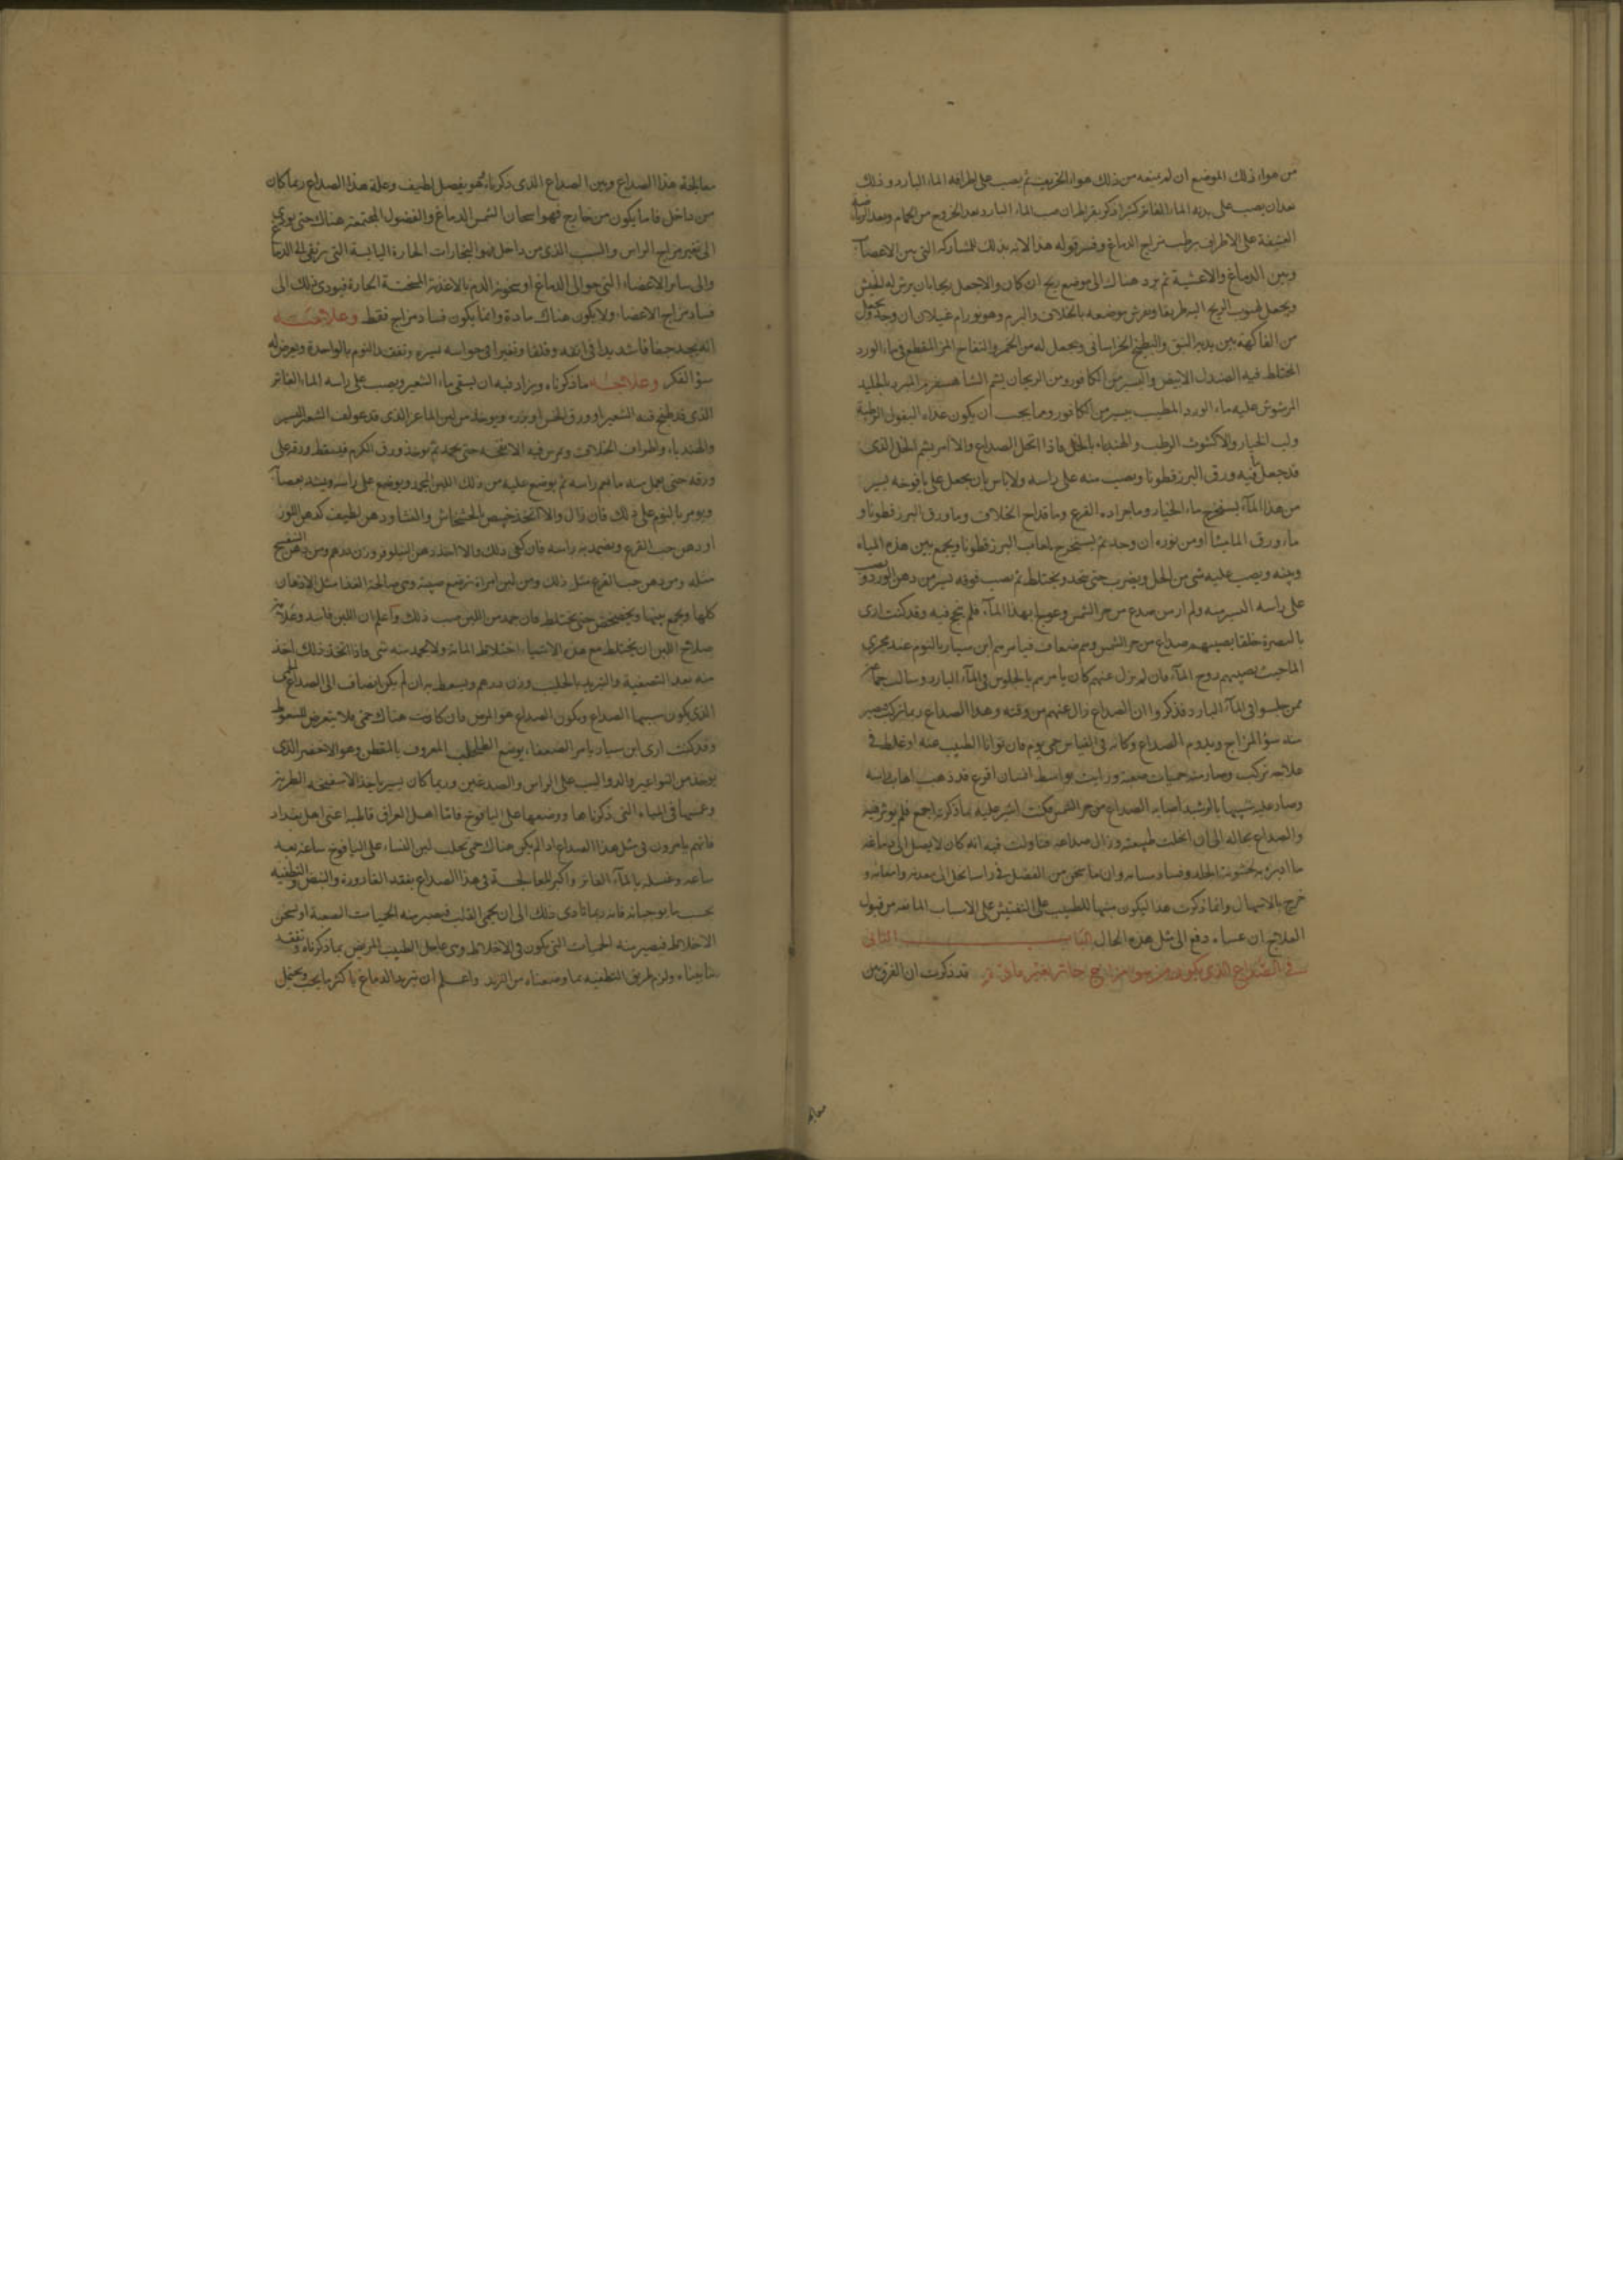 من هواء ذلك الموضع ان لم يمنعه من ذلك هواء الخريف ثم يصب على اطرافه الماء البارد وذلك
بعد ان يصب على بدنه الماء الفاتر كثيرا ذكر بقراط ان صب الماء البارد بعد الخروج من الحمام وبعد الرياضة
العنيفة على الاطراف يرطب مزاج الدماغ وفسر قوله هذا لانه بذلك للمشاركه التي بين الاعصاب
وبين الدماغ والاغشية ثم يرد هناك الى موضع ريح ان كان والا جعل ريحا بان يرش له الخيش
ويجعل لهبوب الريح اليه طريقا ويفرش موضعه بالخلاف والبرم وهو نور ام غيلان ان وجد ويجعل
من الفاكهة بين يديه النبق والبطيخ الخراساني ويجعل له من الخمر والتفاح المز المقطع في ماء الورد
المختلط فيه الصندل الابيض واليسير من الكافور ومن الريحان يشم الشاهسفرم المبرد بالجليد
المرشوش عليه ماء الورد المطيب بيسير من الكافور ومما يجب ان يكون غذاءه البقول الرطبة
ولب الخيار والاكشوث الرطب والهندباء بالخل فاذا انحل الصداع والا امر بشم الخل الذي
قد جعل فيه ورق البزر قطونا ويصب منه على راسه ولا باس بان يجعل على يافوخه يسير
من هذا الماء يستخرج ماء الخيار وماء جرادة القرع وماء قداح الخلاف وماء ورق البزر قطونا و
ماء ورق الماميثا او من نوره ان وجد ثم يستخرج لعاب البزر قطونا ويجمع بين هذه المياه
وبينه ويصب عليه شي من الخل ويضرب حتى يتحد ويختلط ثم يصب فوقه يسير من دهن الورد ويصب
على راسه اليسير منه ولم ار من صدع من حر الشمس وعولج بهذا الماء فلم ينجح فيه وقد كنت ارى
بالبصرة خلقا يصيبهم صداع من حر الشمس وهم ضعاف فيامرهم ابن سيار بالنوم عند مجرى
الماء حيث يصيبهم روح الماء فان لم يزل عنهم كان يامرهم بالجلوس في الماء البارد وسالت جماعة
ممن جلسوا في الماء البارد فذكروا ان الصداع زال عنهم من وقته وهذا الصداع ربما تركب فيصير
منه سوء المزاج ويدوم الصداع وكانه في القياس حمى يوم فان تواناا الطبيب عنه او غلط في
علاجه تركب وصارت حميات صعبة ورايت بواسط انسان اقرع قد ذهب اهاب راسه
وصار عليه شبيها بالرشيد اصابه الصداع من حر الشمس فكنت اشير عليه بما ذكرته اجمع فلم يوثر فيه
والصداع بحاله الى ان انحلت طبيعته وزال صداعه فتاولت فيه انه كان لا يصل الى دماغه
ما ادبره به لخشونة الجلد وفساد مسامه وان ما سخن من الفضل في راسه انحل الى معدته وامعائه و
خرج بالاسهال وانما ذكرت هذا ليكون منبها للطبيب على التفتيش على الاسباب المانعه من قبول
العلاج ان عساه دفع الى مثل هذه الحال الباب الثاني
في الصداع الذي يكون من سوء مزاج حار بغير مادة قد ذكرت ان الفرق بين
معالجة
معالجة هذا الصداع وبين الصداع الذي ذكرناه هو بفصل لطيف وعلة هذا الصداع ربما كان
من داخل فاما يكون من خارج فهو اسخان الشمس الدماغ والفضول المجتمعة هناك حتى يودي
الى تغير مزاج الراس والسبب الذي من داخل فهو البخارات الحارة اليابسة التي ترتقي الى الدماغ
والى سائر الاعضاء التي حوالى الدماغ او سخونة الدم بالاغذية المسخنة الحارة فيودي ذلك الى
فساد مزاج الاعضاء ولا يكون هناك مادة وانما يكون فساد مزاج فقط وعلامته
انه يجد جفافا شديدا في انفه وقلقا وتغيرا في حواسه يسيره وتفقد النوم بالواحدة ويعرض له
سوء الفكر وعلاجه ما ذكرناه ويزاد فيه ان يسقى ماء الشعير ويصب على راسه الماء الفاتر
الذي قد طبخ فيه الشعير او ورق الخس او بزره ويوخذ من لبن الماعز الذي قد علف الشعير اليسير
والهندباء واطراف الخلاف ويمرس فيه الانفحه حتى يجمد ثم يوخذ ورق الكرم فيبسط ورقة على
ورقة حتى يعمل منه ما يعم راسه ثم يوضع عليه من ذلك اللبن المجمد ويوضع على راسه ويشد بعصابة
ويومر بالنوم على ذلك فان زال والا اتخذ خبيص بالخشخاش والنشا ودهن لطيف كدهن اللوز
او دهن حب القرع ويضمد به راسه فان كفى ذلك والا اخذ دهن النيلوفر وزن درهم ومن دهن البنفسج
مثله ومن دهن حب القرع مثل ذلك ومن لبن امراة ترضع صبية وهي صالحة الغذا مثل الادهان
كلها ويجمع بينها ويخضخض حتى يختلط فان جمد من اللبن صب ذلك واعلم ان اللبن فاسد وعلامة
صلاح اللبن ان يختلط مع هذه الاشياء اختلاط الماء به ولا يجمد منه شي فاذا اتخذ ذلك اخذ
منه بعد التصفية والتبريد بالجليد وزن درهم ويسعط به ان لم يكن انضاف الى الصداع الحمى
الذي يكون سببها الصداع ويكون الصداع هو المرض فان كانت هناك حمى فلا يتعرض للسعوط
وقد كنت ارى ابن سيار يامر الضعفاء بوضع الطحلب المعروف بالمقطن وهو الاخضر الذي
يوخذ من النواعير والدواليب على الراس والصدغين وربما كان يسير باخذ الاسفنجه الطرية
وغمسها في المياه التي ذكرناها ووضعها على اليافوخ فاما اهل العراق قاطبة اعني اهل بغداد
فانهم يامرون في مثل هذا الصداع اذا لم يكن هناك حمى بحلب لبن النساء على اليافوخ ساعة بعد
ساعة وغسله بالماء الفاتر واكبر المعالجة في هذا الصداع بفقد القارورة والنبض والتطفيه
بحسب ما يوجبانه فانه ربما تادى ذلك الى ان يحمى القلب فيصير منه الحميات الصعبة او سخن
الاخلاط فيصير منه الحميات التي تكون في الاخلاط ومتى عاجل الطبيب المريض بما ذكرناه وتفقد
ما بيناه ولزم طريق التطفيه بما وصفناه من التبريد واعلم ان تبريد الدماغ باكثر ما يجب ويحتمل